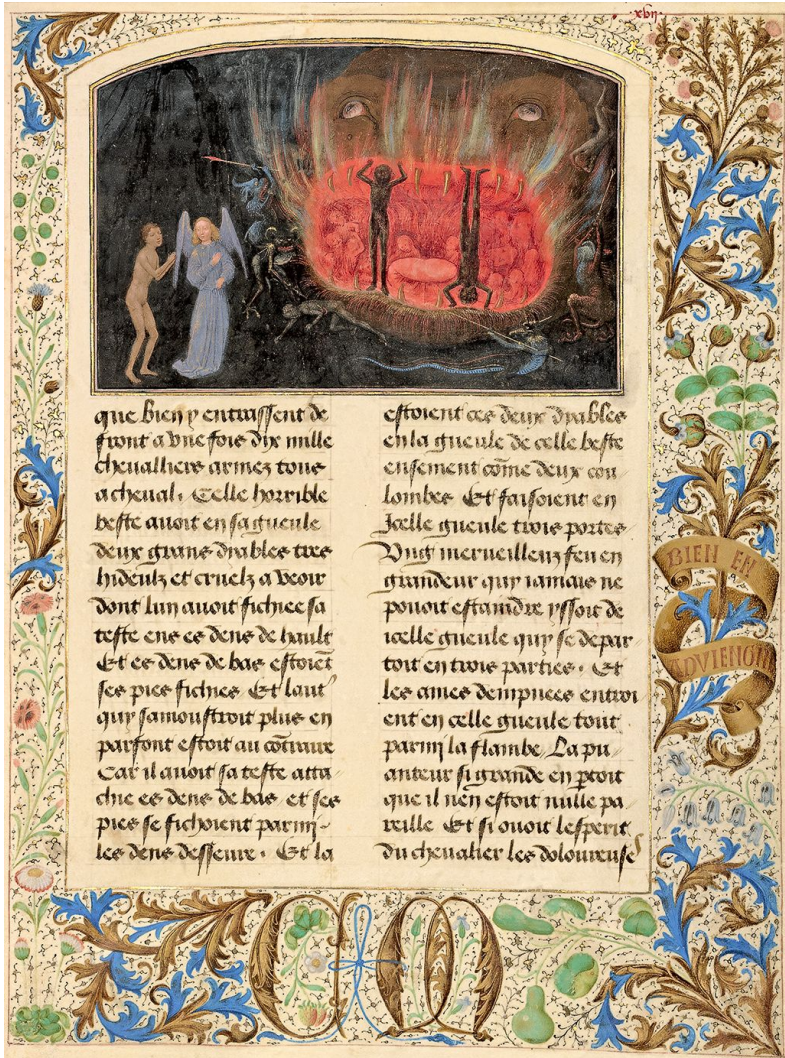 xvij.
que bien y entraissent de
front a vne fois dix mille
cheualliers armez tous
a cheual. Celle horrible
beste auoit en sa gueule
deux grans dyables tres
hideulz et cruelz a veoir
dont lun auoit fichiee sa
teste ens es dens de hault
Et es dens de bas estoiēt
ses pies fichies Et laut'
quy samonstroit plus en
parfont estoit au cōtraire
Car il auoit sa teste atta
chie es dens de bas et ses
pies se fichoient parmi
les dens desseure. Et la
estoient ces deux dyables
en la gueule de celle beste
ensement cōme deux cou
lombes Et faisoient en
Icelle gueule trois portes
Vng merueilleux feu en
grandeur quy iamais ne
pouoit estaindre yssoit de
icelle gueule quy se depar
toit en trois parties. Et
les ames dempnees entroi
ent en celle gueule tout
parmi la flambe La pu
anteur si grande en ꝑtoit
que il nen estoit nulle pa
reille Et si ouoit lesperit
du cheualier les doloureuses
BIEN EN
ADVIENGNE
C M